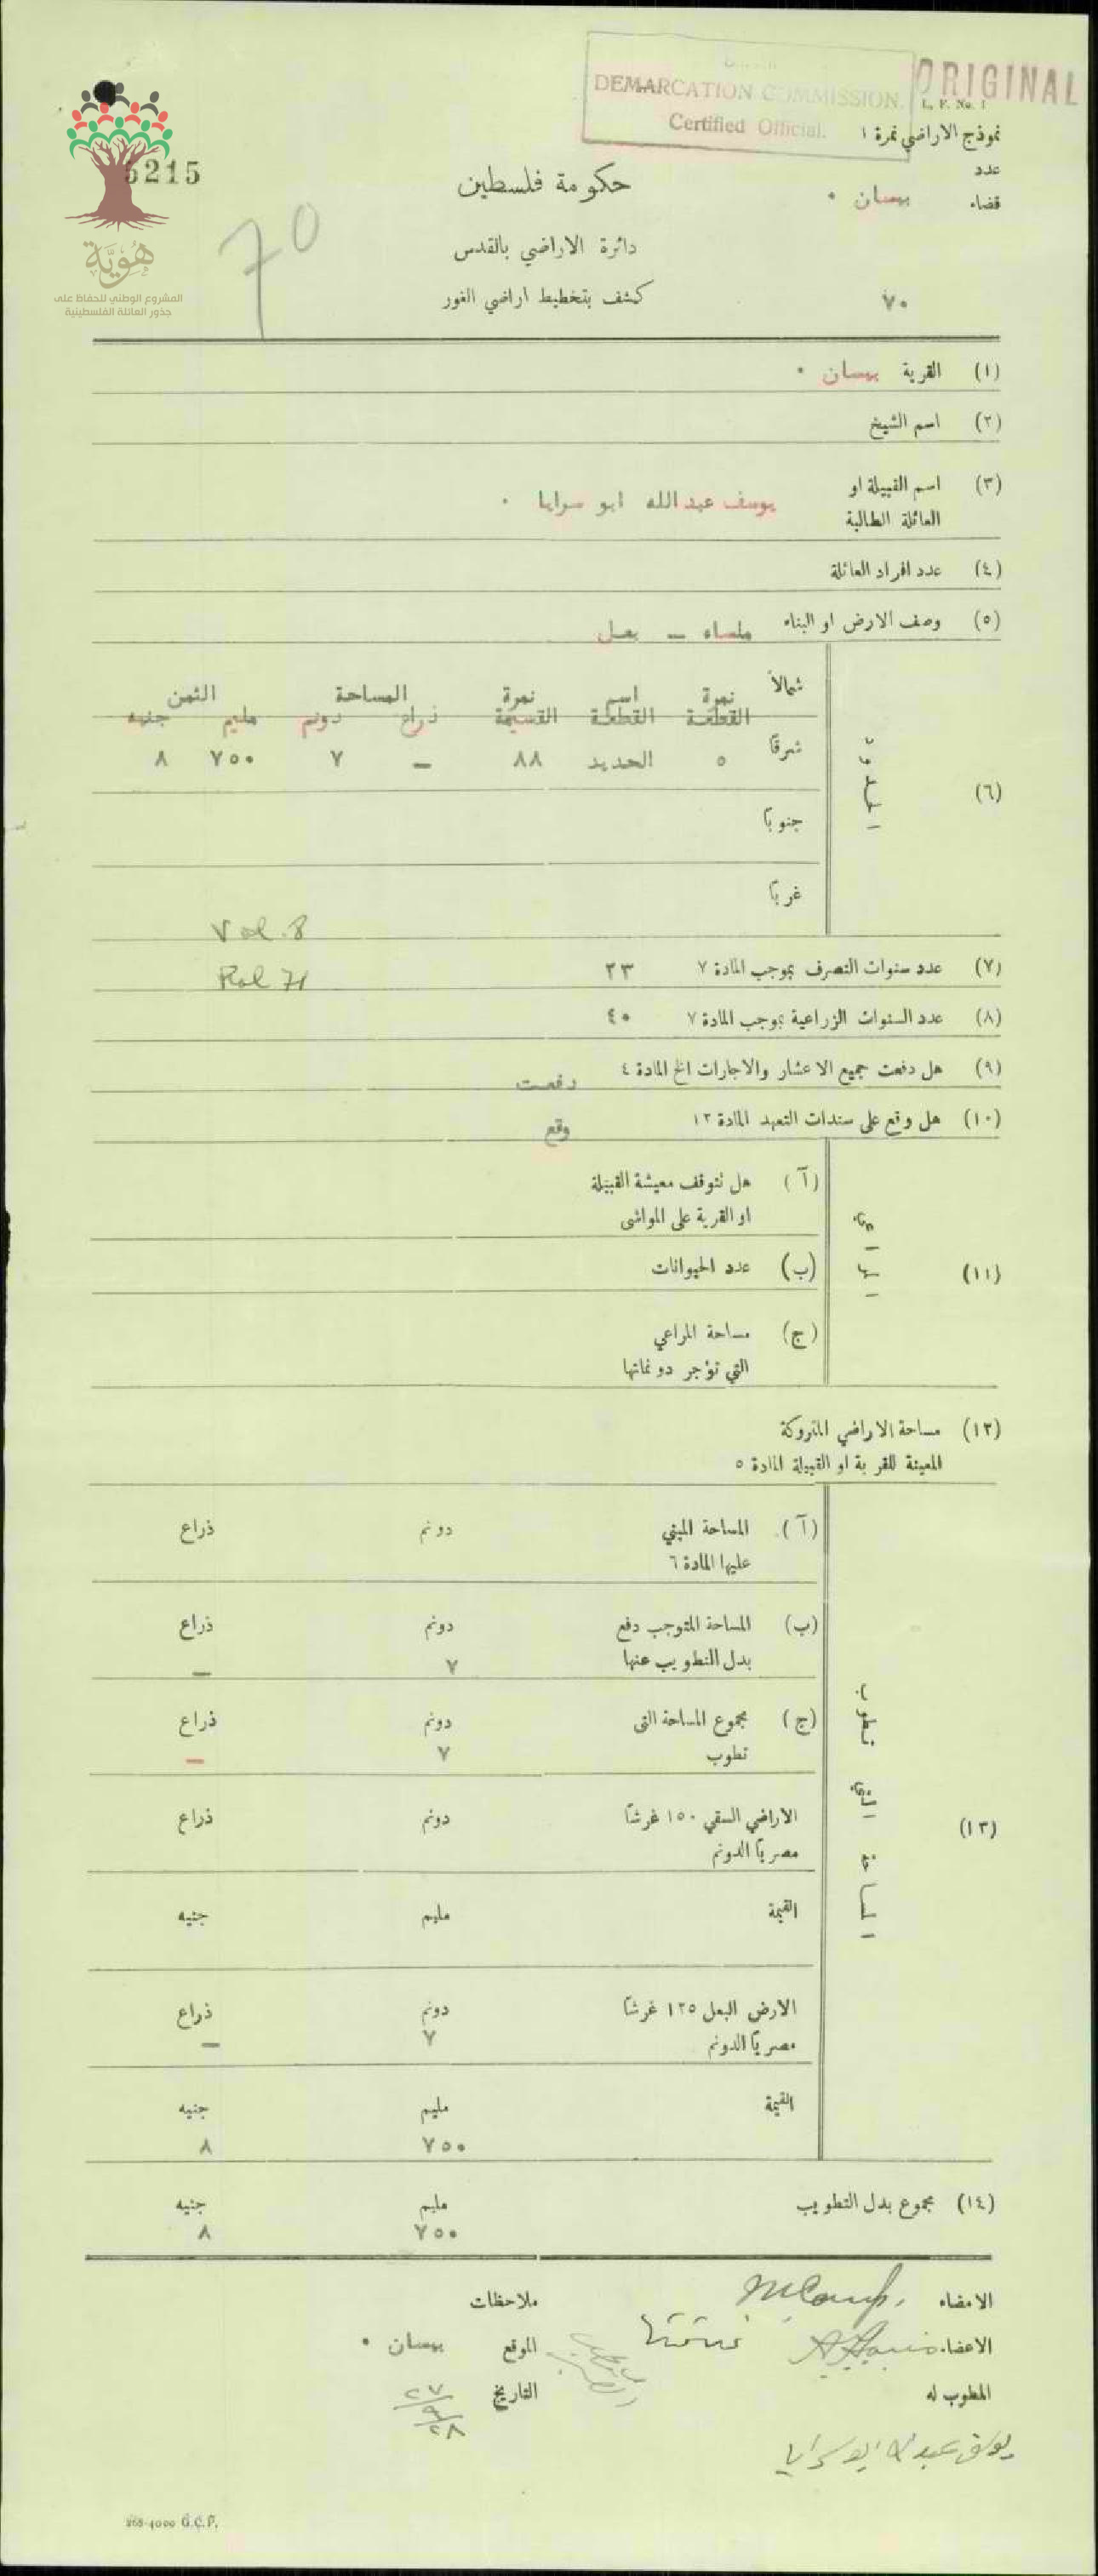 ORIGINAL
DEMARCATION COMMISSION.
Certified Official.
L. F. No. 1
نموذج الاراضي نمرة ١
عدد
قضاء بيسان •
5215
حكومة فلسطين
70
دائرة الاراضي بالقدس
كشف بتخطيط اراضي الغور
٧٠
هُوِيَّة
المشروع الوطني للحفاظ على
جذور العائلة الفلسطينية
(١) القرية بيسان •
(٢) اسم الشيخ
(٣) اسم القبيلة او
العائلة الطالبة يوسف عبدالله ابو سرايا •
(٤) عدد افراد العائلة
(٥) وصف الارض او البناء ملساء — بعل
(٦) الحدود
شمالاً نمرة القطعة اسم القطعة نمرة القسيمة المساحة ذراع دونم الثمن مليم جنيه
شرقاً ٥ الحديد ٨٨ — ٧ ٧٥٠ ٨
جنوباً
غرباً
Vol. 8
Fol 71
(٧) عدد سنوات التصرف بموجب المادة ٧ ٢٣
(٨) عدد السنوات الزراعية بموجب المادة ٧ ٤٠
(٩) هل دفعت جميع الاعشار والاجارات الخ المادة ٤ دفعت
(١٠) هل وقع على سندات التعهد المادة ١٢ وقع
(١١) المراعي
(آ) هل تتوقف معيشة القبيلة
او القرية على المواشى
(ب) عدد الحيوانات
(ج) مساحة المراعي
التي تؤجر دونماتها
(١٢) مساحة الاراضي المتروكة
المعينة للقرية او القبيلة المادة ٥
(١٣) المساحة التي تطوب
(آ) المساحة المبني دونم ذراع
عليها المادة ٦
(ب) المساحة المتوجب دفع دونم ذراع
بدل التطويب عنها ٧ —
(ج) مجموع المساحة التى دونم ذراع
تطوب ٧ —
الاراضي السقي ١٥٠ غرشاً دونم ذراع
مصرياً الدونم
القيمة مليم جنيه
الارض البعل ١٢٥ غرشاً دونم ذراع
مصرياً الدونم ٧ —
القيمة مليم جنيه
٧٥٠ ٨
(١٤) مجموع بدل التطويب مليم جنيه
٧٥٠ ٨
الامضاء ملاحظات
الاعضاء الموقع بيسان •
المطوب له التاريخ ٢٧/٩/٢٨
يوسف عبدالله ابو سرايا
268-4000 G.C.P.